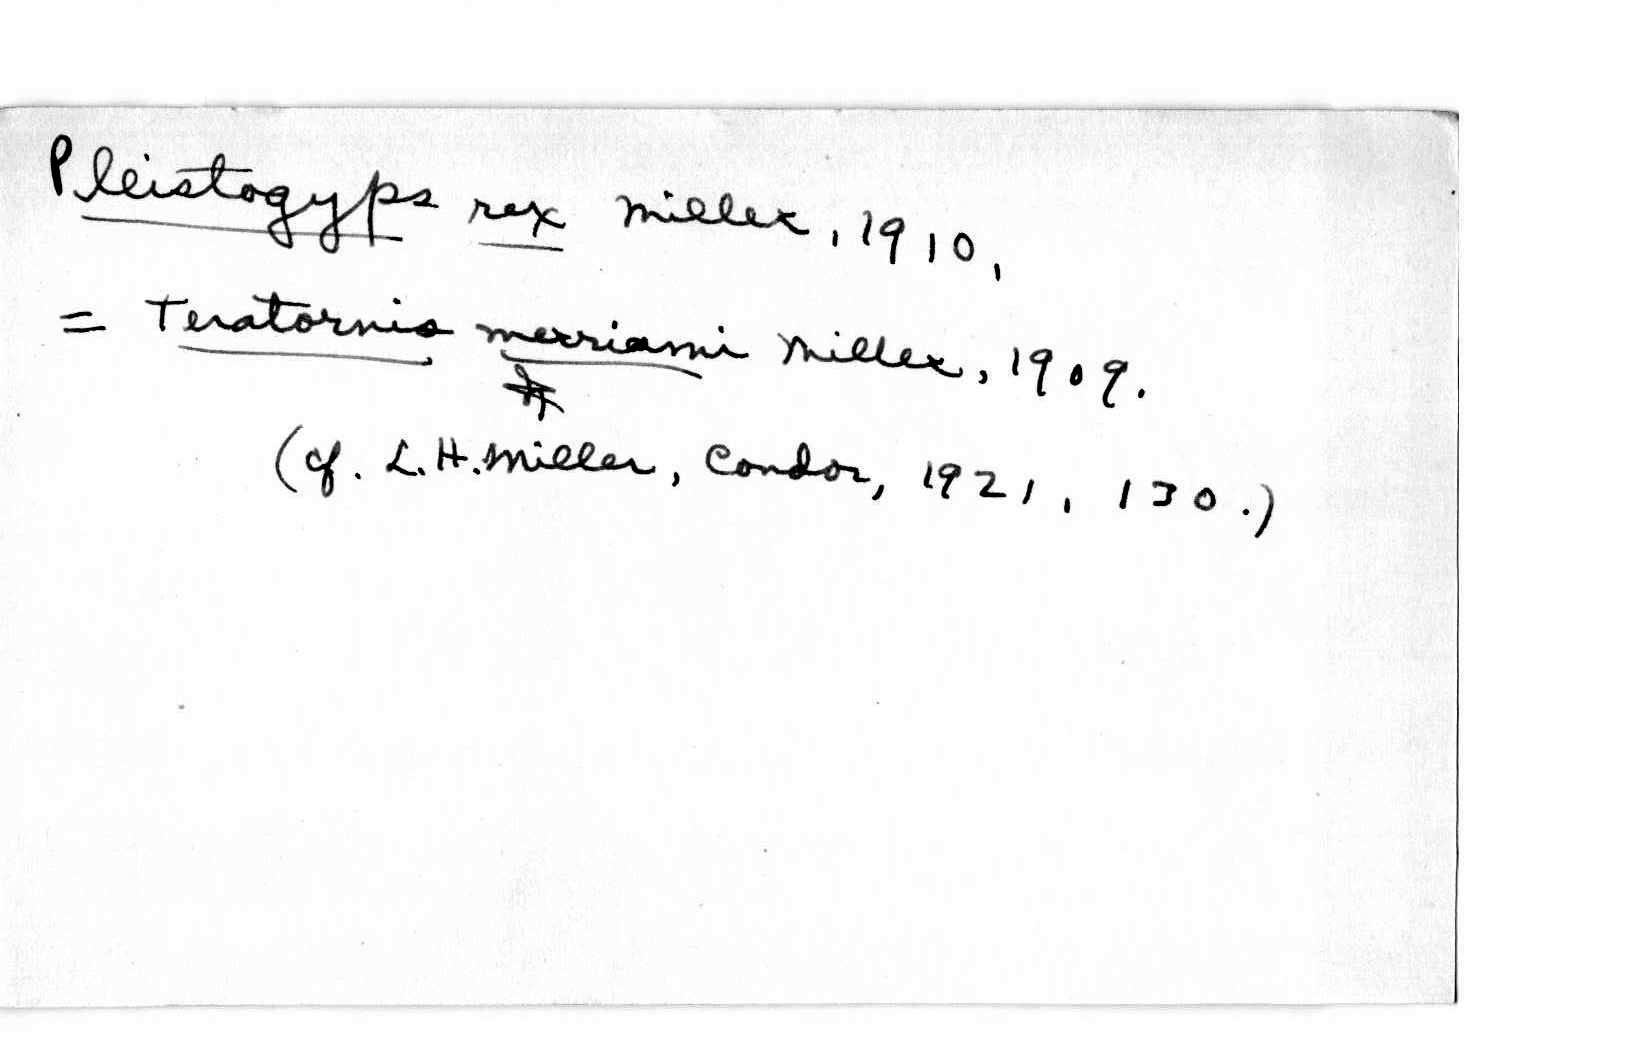 Pleistogyps rex Miller, 1910,
= Teratornis merriami Miller, 1909.
(cf. L.H. Miller, Condor, 1921, 130.)